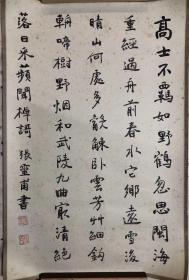 高士不羈如野鶴忽思閩海
重經過舟前春水它鄉遠雪後
晴山何處多觳觫臥雲芳艸細鈎
輈啼樹野烟和武陵九曲最清絕
落日采蘋聞棹謌 張靈甫書